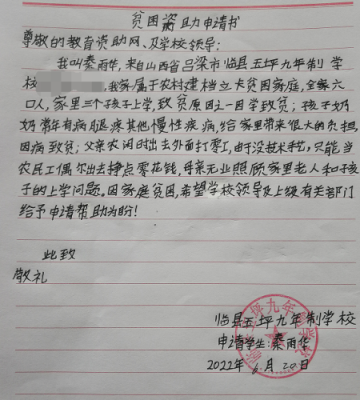 贫困资助申请书
尊敬的教育资助网、及学校领导：
我叫秦雨华，来自山西省吕梁市临县五坪九年制学
校 我家属于农村建档立卡贫困家庭，全家六
口人，家里三个孩子上学，致贫原因主一因学致贫；孩子奶
奶常年有病腿疼其他慢性疾病，给家里带来很大的负担，
因病致贫；父亲农闲时出去外面打零工，由于没技术手艺，只能当
农民工偶尔出去挣点零花钱，母亲无业照顾家里老人和孩
子的上学问题。因家庭贫困，希望学校领导及上级有关部门
给予申请帮助为盼！
此致
敬礼
临县五坪九年制学校
申请学生：秦雨华
2022年6月20日